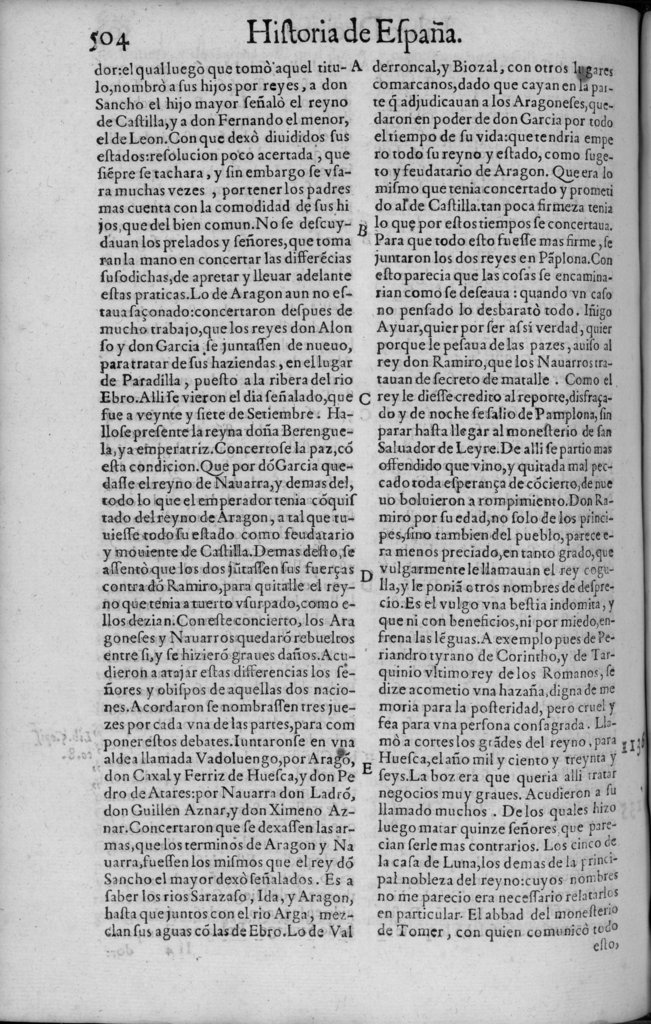 504
Hiſtoria de Eſpaña.
dor:el qual luegò que tomò aquel titu-
lo,nombrò a ſus hijos por reyes, a don
Sancho el hijo mayor ſeñalò el reyno
de Caſtilla,y a don Fernando el menor,
el de Leon.Con que dexò diuididos ſus
eſtados:reſolucion poco acertada, que
ſiẽpre ſe tachara, y ſin embargo ſe vſa-
ra muchas vezes, por tener los padres
mas cuenta con la comodidad de ſus hi
jos,que del bien comun.No ſe deſcuy-
dauan los prelados y ſeñores,que toma
ran la mano en concertar las differẽcias
ſuſodichas,de apretar y lleuar adelante
eſtas praticas.Lo de Aragon aun no eſ-
taua ſaçonado:concertaron deſpues de
mucho trabajo,que los reyes don Alon
ſo y don Garcia ſe juntaſſen de nueuo,
para tratar de ſus haziendas, en el lugar
de Paradilla, pueſto a la ribera del rio
Ebro.Alli ſe vieron el dia ſeñalado,que
fue a veynte y ſiete de Setiembre. Ha-
lloſe preſente la reyna doña Berengue-
la,ya emperatriz.Concertoſe la paz,cõ
eſta condicion.Que por dõ Garcia que-
daſſe el reyno de Nauarra,y demas del,
todo lo que el emperador tenia cõquiſ
tado del reyno de Aragon, a tal que tu-
uieſſe todo ſu eſtado como feudatario
y mouiente de Caſtilla.Demas deſto,ſe
aſſentò que los dos jũtaſſen ſus fuerças
contra dõ Ramiro,para quitalle el rey-
no que tenia a tuerto vſurpado,como e-
llos dezian.Con eſte concierto, los Ara
goneſes y Nauarros quedarõ rebueltos
entre ſi,y ſe hizierõ graues daños.Acu-
dieron a atajar eſtas differencias los ſe-
ñores y obiſpos de aquellas dos nacio-
nes.Acordaron ſe nombraſſen tres jue-
zes por cada vna de las partes,para com
poner eſtos debates.Iuntaronſe en vna
aldea llamada Vadoluengo,por Aragõ,
don Caxal y Ferriz de Hueſca,y don Pe
dro de Atares:por Nauarra don Ladrõ,
don Guillen Aznar,y don Ximeno Az-
nar.Concertaron que ſe dexaſſen las ar-
mas,que los terminos de Aragon y Na
uarra,fueſſen los miſmos que el rey dõ
Sancho el mayor dexò ſeñalados. Es a
ſaber los rios Sarazaſo, Ida, y Aragon,
haſta que juntos con el rio Arga, mez-
clan ſus aguas cõ las de Ebro.Lo de Val
A
B
C
D
E
derroncal,y Biozal, con otros lugares
comarcanos,dado que cayan en la par-
te q̃ adjudicauan a los Aragoneſes,que-
daron en poder de don Garcia por todo
el tiempo de ſu vida:que tendria empe
ro todo ſu reyno y eſtado, como ſuge-
to y feudatario de Aragon. Que era lo
miſmo que tenia concertado y prometi
do al de Caſtilla.tan poca firmeza tenia
lo que por eſtos tiempos ſe concertaua.
Para que todo eſto fueſſe mas firme, ſe
juntaron los dos reyes en Pãplona.Con
eſto parecia que las coſas ſe encamina-
rian como ſe deſeaua: quando vn caſo
no penſado lo desbaratò todo. Iñigo
Ayuar,quier por ſer aſsi verdad, quier
porque le peſaua de las pazes, auiſo al
rey don Ramiro,que los Nauarros tra-
tauan de ſecreto de matalle. Como el
rey le dieſſe credito al reporte,disfraça-
do y de noche ſe ſalio de Pamplona,ſin
parar haſta llegar al moneſterio de ſan
Saluador de Leyre.De alli ſe partio mas
offendido que vino,y quitada mal pec-
cado toda eſperança de cõcierto,de nue
uo boluieron a rompimiento.Don Ra-
miro por ſu edad,no ſolo de los princi-
pes,ſino tambien del pueblo, parece e-
ra menos preciado,en tanto grado,que
vulgarmente le llamauan el rey cogu-
lla,y le poniã otros nombres de deſpre-
cio.Es el vulgo vna beſtia indomita, y
que ni con beneficios,ni por miedo,en-
frena las lẽguas.A exemplo pues de Pe-
riandro tyrano de Corintho,y de Tar-
quinio vltimo rey de los Romanos, ſe
dize acometio vna hazaña,digna de me
moria para la poſteridad, pero cruel y
fea para vna perſona conſagrada. Lla-
mò a cortes los grãdes del reyno, para
Hueſca,el año mil y ciento y treynta y
ſeys.La boz era que queria alli tratar
negocios muy graues. Acudieron a ſu
llamado muchos. De los quales hizo
luego matar quinze ſeñores,que pare-
cian ſerle mas contrarios. Los cinco de
la caſa de Luna,los demas de la princi-
pal nobleza del reyno:cuyos nombres
no me parecio era neceſſario relatarlos
en particular. El abbad del moneſterio
de Tomer, con quien comunicò todo
eſto,
1136